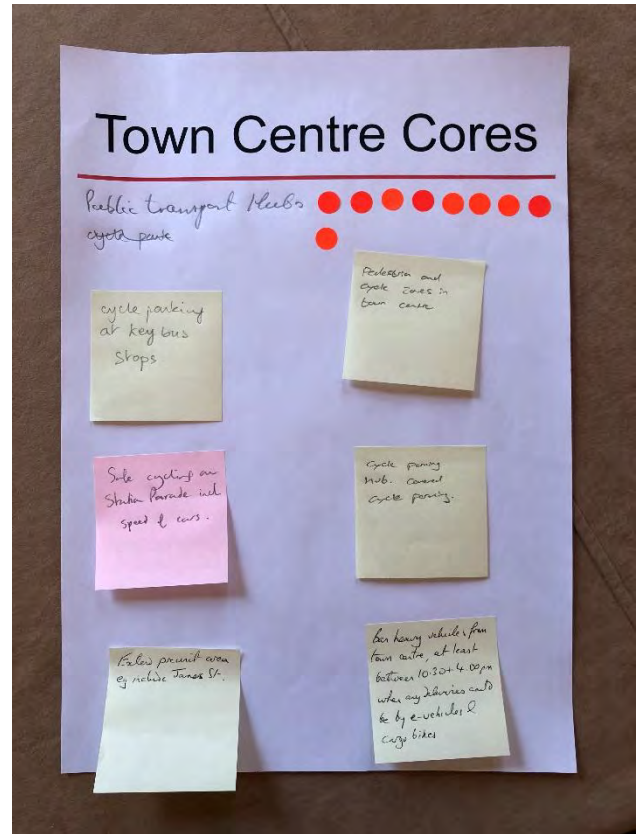 Town Centre Cores
Public transport Hubs
cycle park
cycle parking
at key bus
stops
Pedestrian and
cycle zones in
town centre
Safe cycling on
Station Parade incl
speed of cars.
Cycle parking
Hub. Covered
cycle parking.
area
eg include James St.
bar heavy vehicles from
town centre, at least
between 10:30 + 4.00pm
when any deliveries could
be by e-vehicles &
cargo bikes